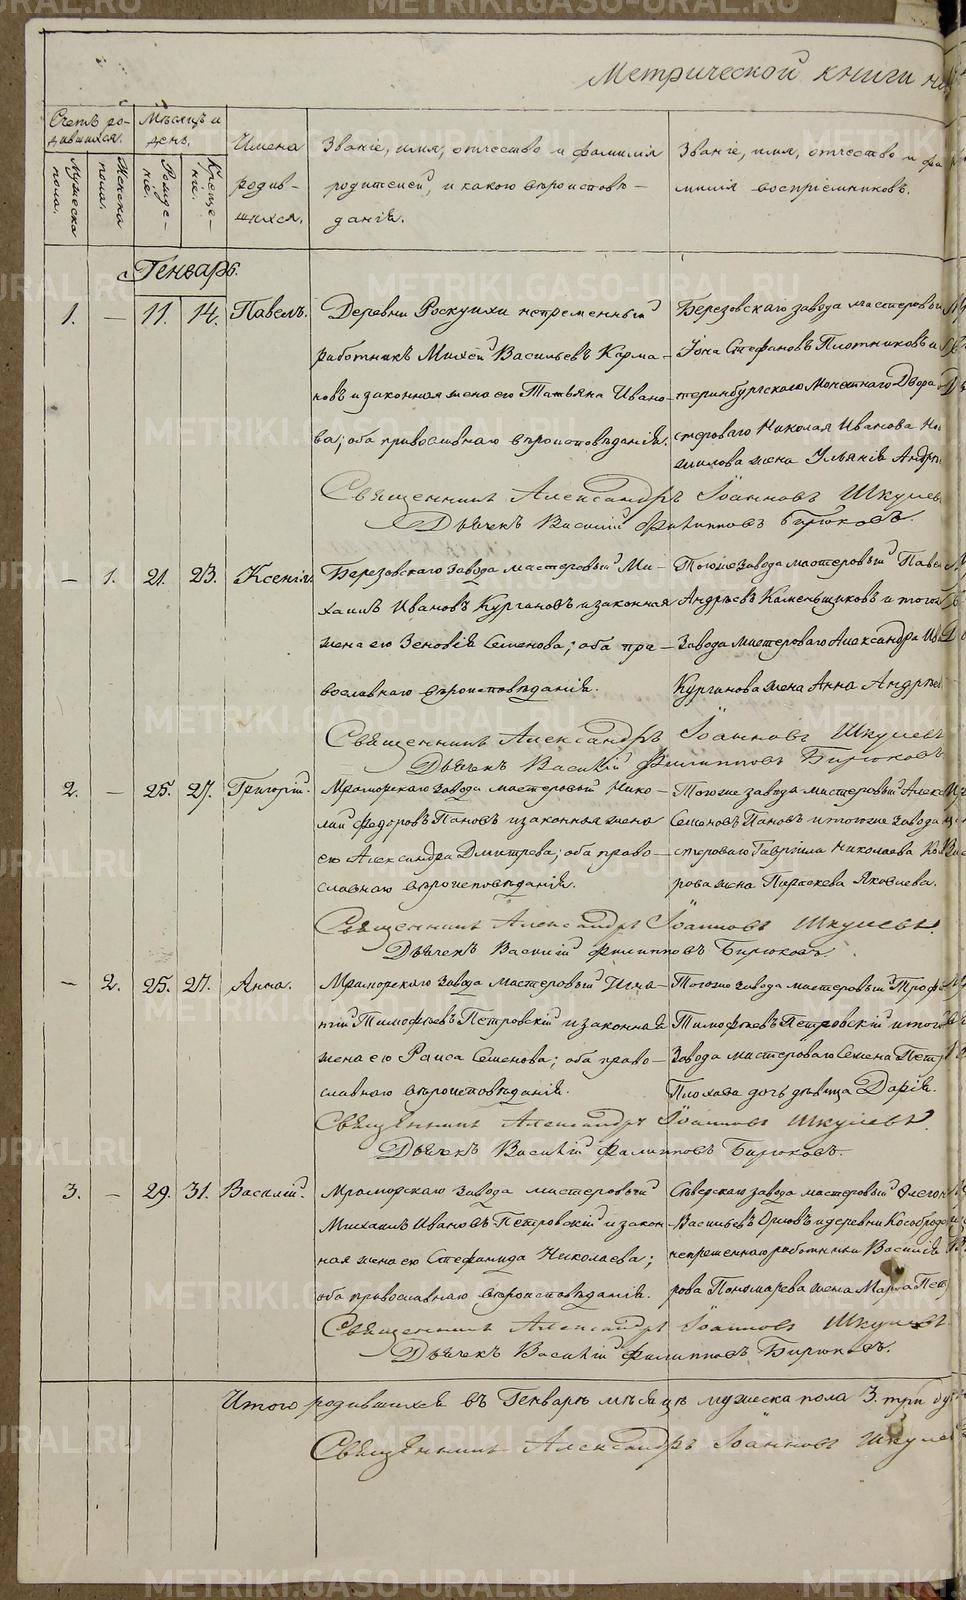 Метрической книги на
Счетъ ро-
дившихся.
Мѣсяцъ и
день.
Имена
родив-
шихся.
Званіе, имя, отчество и фамилія
родителей, и какого вѣроисповѣ-
данія.
Званіе, имя, отчество и фа
милія воспріемниковъ.
Мужеска
пола.
Женска
пола.
Рожде-
ніе.
Креще-
ніе.
Генварь.
1. — 11. 14. Павелъ.
Деревни Роскуихи непременный
работникъ Михей Васильевъ Карма-
новъ и законная жена его Татьяна Ивано-
ва; оба православнаго вѣроисповѣданія.
Березовскаго завода мастеровый
Іона Стефановъ Плотниковъ и
теринбургскаго Монетнаго Двора
стероваго Николая Иванова
жена Ульянія Андре
Священникъ Александръ Іоанновъ Шкулевъ
Дьячекъ Василій Филипповъ Бирюковъ.
— 1. 21. 23. Ксенія
Березовскаго завода мастеровый Ми-
хаилъ Ивановъ Кургановъ и законная
жена его Зеновія Семенова; оба пра-
вославнаго вѣроисповѣданія.
Тогоже завода мастеровый Павел
Андреевъ Каменьщиковъ и тогож
завода мастероваго Александра Ив
Курганова жена Анна Андрее
Священникъ Александръ Іоанновъ Шкулевъ
Дьячекъ Василій Филипповъ Бирюковъ.
2. — 25. 27. Григорій.
Мраморскаго завода мастеровый Нико-
лай Федоровъ Пановъ и законная жена
его Александра Дмитрева; оба право-
славнаго вѣроисповѣданія.
Тогоже завода мастеровый Алекс
Семеновъ Пановъ и тогоже завода
стероваго Гавріила Николаева
рова жена Параскева Яковлева.
Священникъ Александръ Іоанновъ Шкулевъ.
Дьячекъ Василій Филипповъ Бирюковъ.
— 2. 25. 27. Анна.
Мраморскаго завода мастеровый Игна-
тій Тимофѣевъ Петровскій и законная
жена его Раиса Семенова; оба право-
славнаго вѣроисповѣданія.
Тогоже завода мастеровый Троф
Тимофѣевъ Петровскій и того
завода мастероваго Семена Петр
Плохова дочь дѣвица Дарія.
Священникъ Александръ Іоанновъ Шкулевъ.
Дьячекъ Василій Филипповъ Бирюковъ.
3. — 29. 31. Василій.
Мраморскаго завода мастеровый
Михаилъ Ивановъ Петровскій и закон
ная жена его Стефанида Николаева;
оба православнаго вѣроисповѣданія.
Сѣверскаго завода мастеровый
Васильевъ Орловъ и деревни Кособродо
непременнаго работника Василія
рова Пономарева жена Марѳа Пет
Священникъ Александръ Іоанновъ Шкулевъ
Дьячекъ Василій Филипповъ Бирюковъ.
Итого родившихся въ Генварѣ мѣсяцѣ мужеска пола 3. три
Священникъ Александръ Іоанновъ Шкуле
METRIKI.GASO-URAL.RU